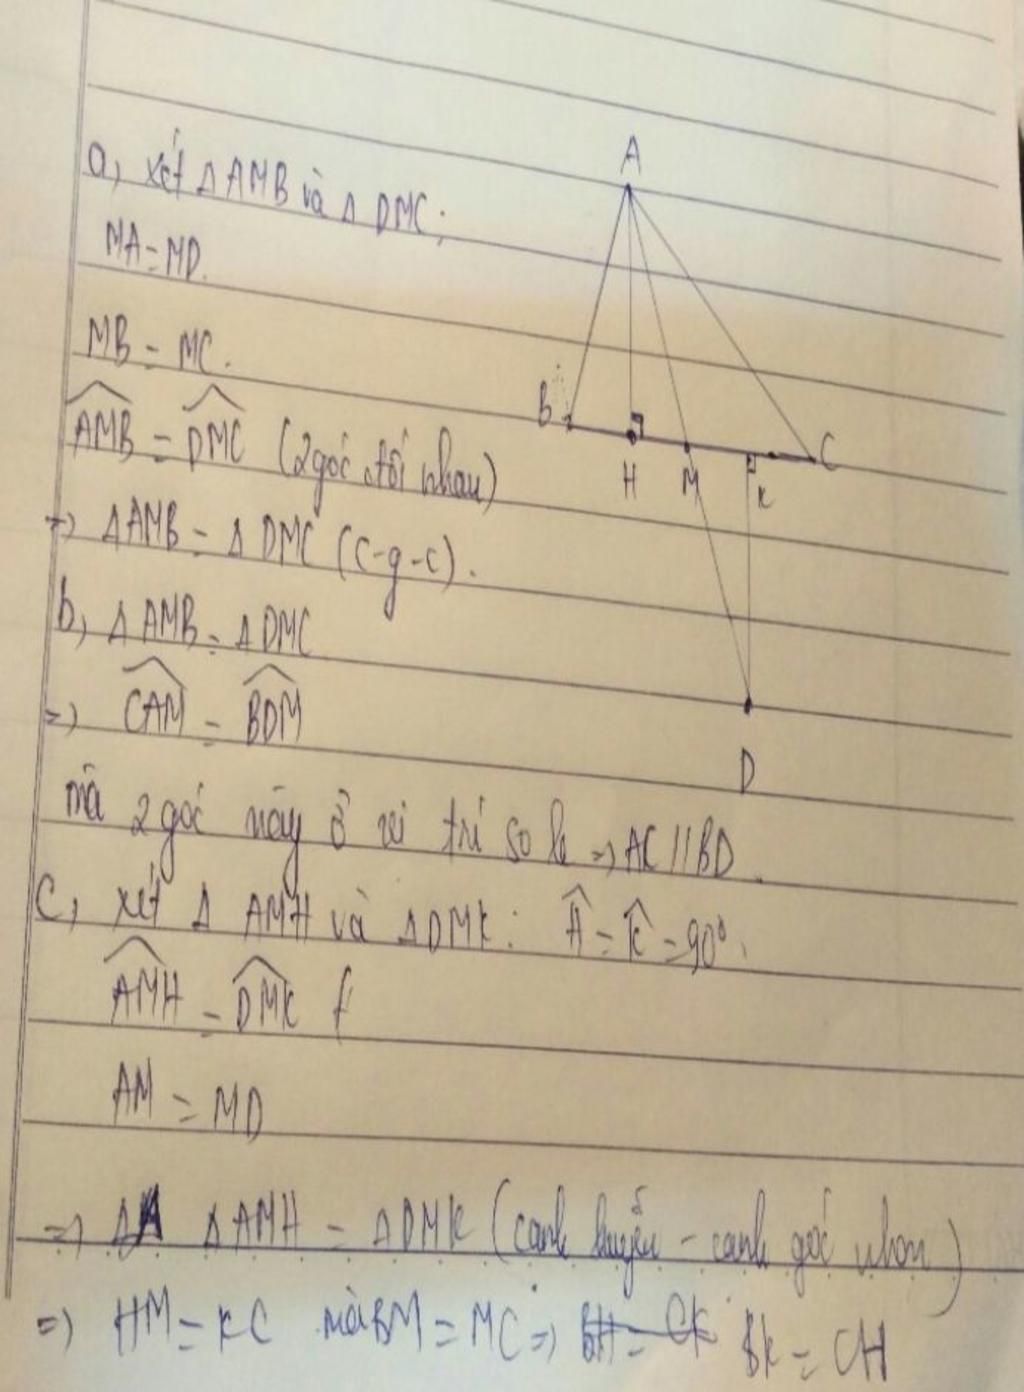 a, xét Δ AMB và Δ DMC:
MA = MD.
MB = MC.
\widehat{AMB} = \widehat{DMC} (2 góc đối nhau)
=> Δ AMB = Δ DMC (c-g-c).
b, Δ AMB = Δ DMC
=> \widehat{CAM} = \widehat{BDM}
mà 2 góc này ở vị trí so le => AC // BD.
c, xét Δ AMH và Δ DMK: \widehat{H} = \widehat{K} = 90°.
\widehat{AMH} = \widehat{DMK}
AM = MD
=> Δ AMH = Δ DMK (cạnh huyền - cạnh góc nhọn)
=> HM = KC mà BM = MC => BH = CK BK = CH
A
B
H
M
K
C
D